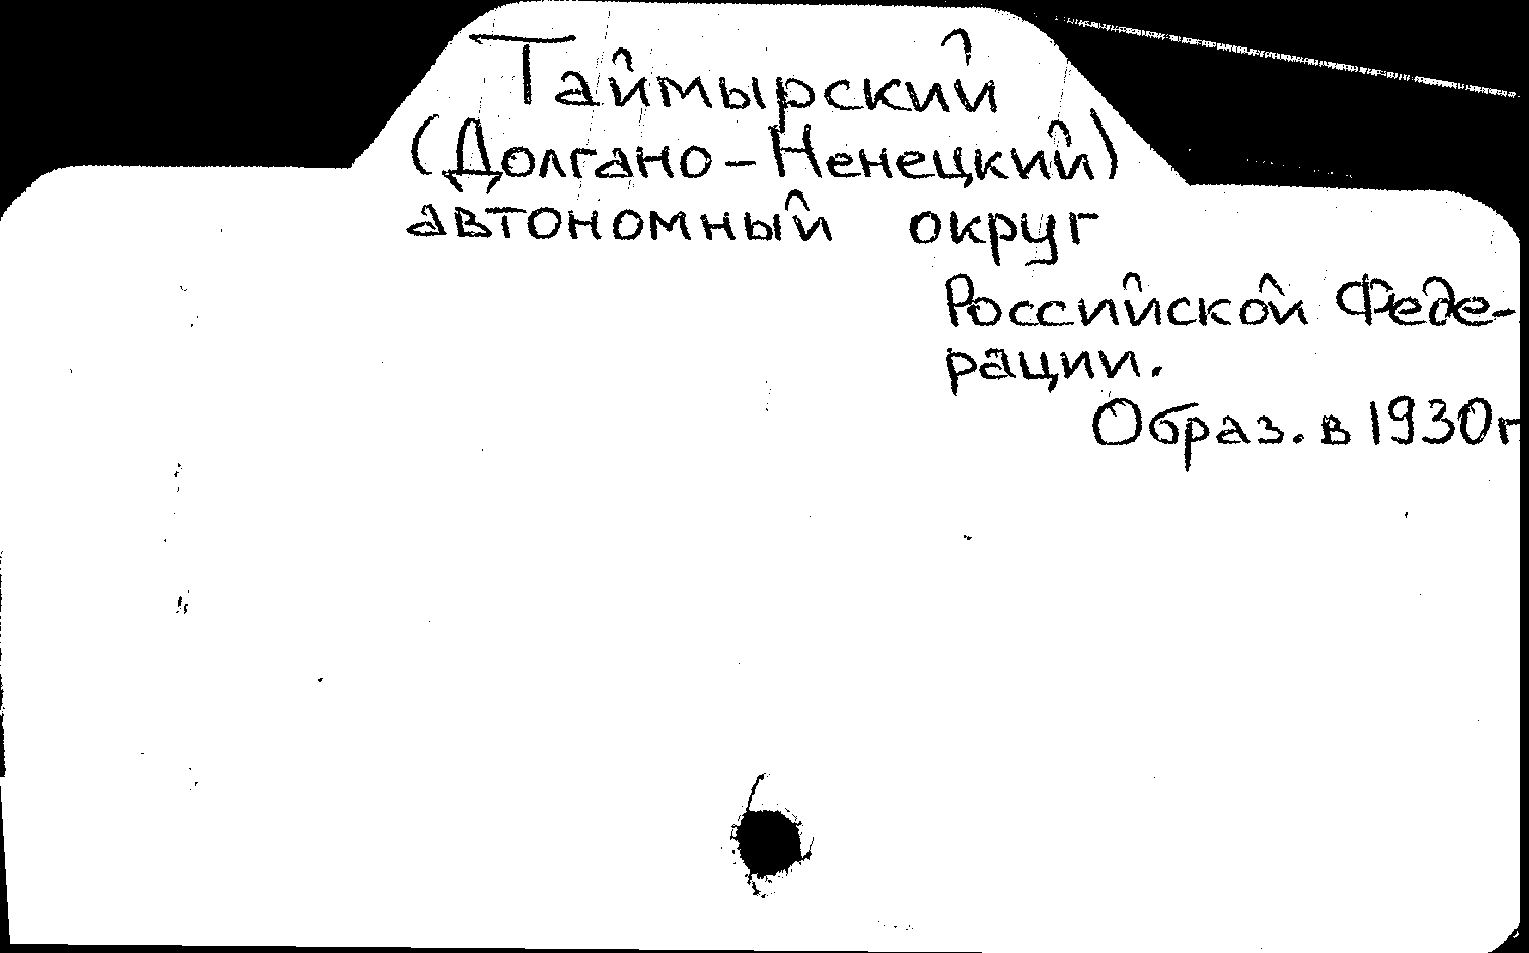 Таймырский
(Долгано-Ненецкий)
автономный округ
Российской Феде-
рации.
Образ. в 1930г